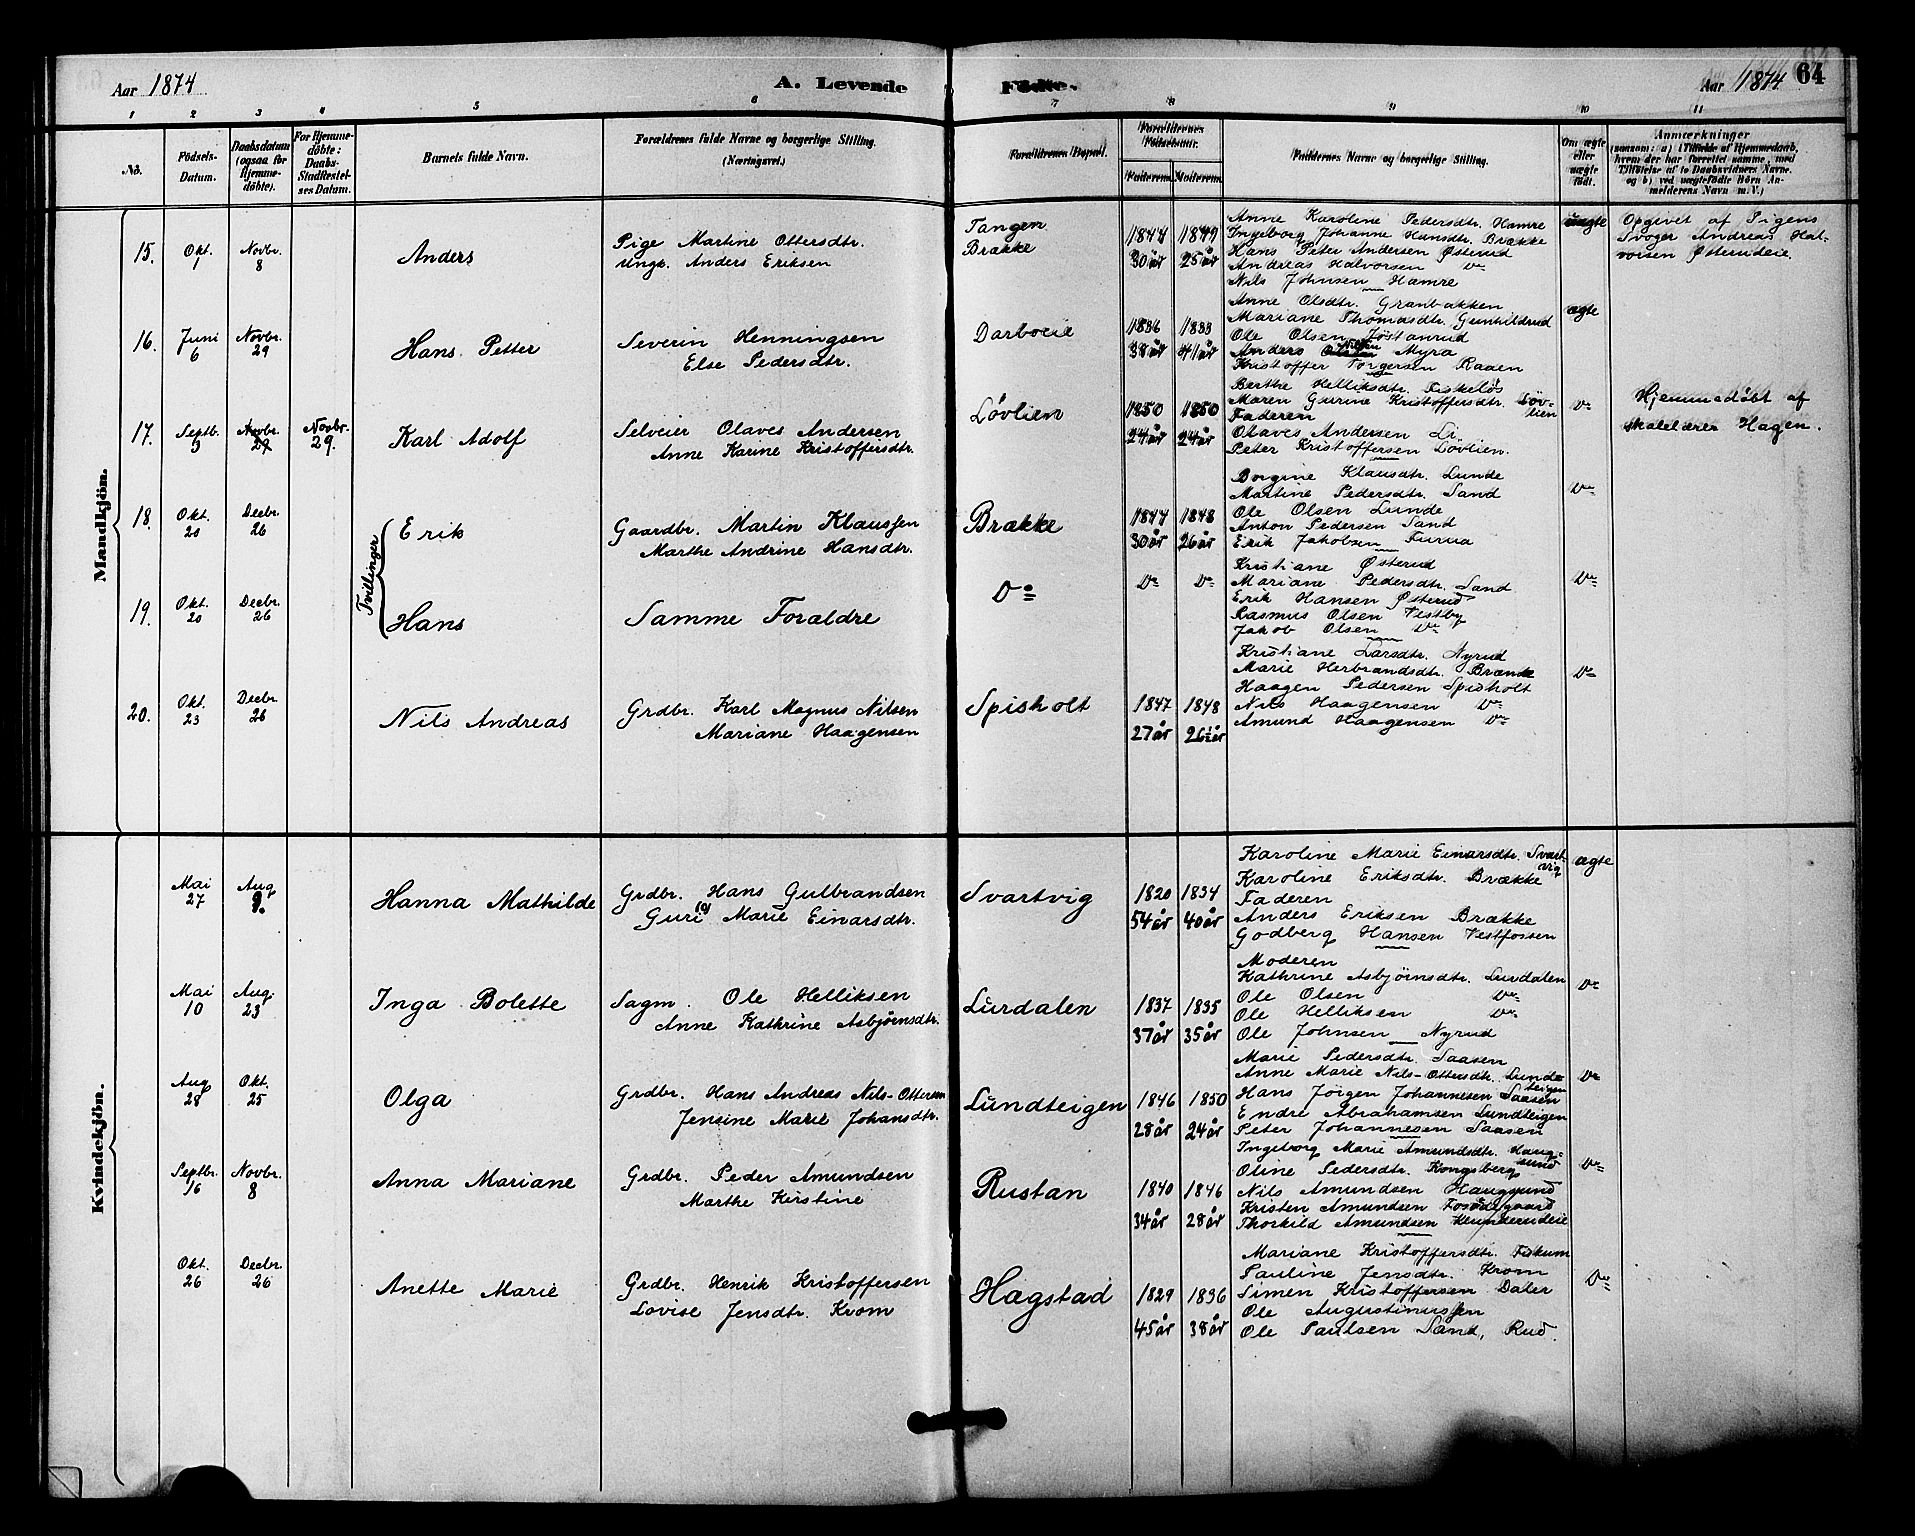 Aar 1874
A. Levende Fødte.
Aar 1874 64
1 2 3 4 5 6 7 8 9 10 11
No.
Födsels-Datum.
Daabsdatum (ogsaa for Hjemme-döbte).
For Hjemme-döbte: Daabs-Stadfæstel-ses Datum.
Barnets fulde Navn.
Forældrenes fulde Navne og borgerlige Stilling. (Næringsvei.)
Forældrenes Bopæl.
Forældrenes Födselsaar.
Faderens. Moderens.
Faddernes Navne og borgerlige Stilling.
Om ægte eller uægte födt.
Anmærkninger
(saasom: a) i Tilfælde af Hjemmedaab, hvem der har forrettet samme, med Tilföielse af to Daabsvidners Navne, og b) ved uægtefödte Börn An-melderens Navn m. V.)
Mandkjön.
15. Okt. 1 Novbr. 8
Anders
Pige Martine Ottersdtr.
Ungk. Anders Eriksen
Tangen
Brække
1844 1849
30 år 25 år
Anne Karoline Pedersdtr. Hamre
Ingeborg Johanne Hansdtr. Brække
Hans Peter Andersen Østerud
Andreas Halvorsen Do
Nils Johnsen Hamre
uægte
Opgivet af Pigens
Svoger Andreas Hal-
vorsen Østerudeie
16. Juni 6 Novbr. 29
Hans Petter
Severin Henningsen
Else Pedersdtr.
Darboeie
1836 1833
38 år 41 år
Anne Olsdtr. Granbakken
Mariane Thomasdtr. Gunhildrud
Ole Olsen Jøstanrud
Anders Nilsen Myra
Kristoffer Torgersen Raaen
ægte
17. Septb. 5 Novbr. 29 Novbr. 29.
Karl Adolf
Selveier Olaves Andersen
Anne Karine Kristoffersdtr.
Løvlien
1850 1850
24 år 24 år
Berthe Helliksdtr. Fiskeløs
Maren Gurine Kristoffersdtr. Løv-
lien
Faderen
Olaves Andersen Li
Peter Kristoffersen Løvlien.
Do
Hjemmedøbt af
skolelærer Hagen.
18. Okt. 20 Decbr. 26
Tvillinger
Erik
Gaardbr. Martin Klaussen
Marthe Andrine Hansdtr.
Brække
1844 1848
30 år 26 år
Borgine Klausdtr. Lunde
Martine Pedersdtr. Sand
Ole Olsen Lunde
Anton Pedersen Sand
Erik Jakobsen Furua
Do
19. Okt. 20 Decbr. 26
Hans
Samme Forældre
Do
Do Do
Kristiane Østerud
Mariane Pedersdtr. Sand
Erik Hansen Østerud
Rasmus Olsen Vestby
Jakob Olsen Do
Do
20. Okt. 23 Decbr. 26
Nils Andreas
Grdbr. Karl Magnus Nilsen
Mariane Haagensen
Spisholt
1847 1848
27 år 26½ år
Kristiane Larsdtr. Nyrud
Marie Herbrandsdtr. Brænne
Haagen Pedersen Spisholt
Nils Haagensen Do
Amund Haagensen Do
Do
Kvindekjön.
Mai 27 Aug. 9.
Hanna Mathilde
Grdbr. Hans Gulbrandsen
Guri (o) Marie Einarsdtr.
Svartvig
1820 1834
54 år 40 år
Karoline Marie Einarsdtr. Svart-
vig
Karoline Eriksdtr. Brække
Faderen
Anders Eriksen Brække
Godberg Hansen Vestfossen
ægte
Mai 10 Aug. 23
Inga Bolette
Sagm. Ole Helliksen
Anne Kathrine Asbjørnsdtr.
Lurdalen
1837 1835
37 år 35 år
Moderen
Kathrine Asbjørnsdtr. Lurdalen
Ole Olsen Do
Ole Helliksen Do
Ole Johnsen Nyrud
Do
Aug 28 Okt. 25
Olga
Grdbr. Hans Andreas Nils-Ottersen
Jensine Marie Johansdtr.
Lundteigen
1846 1850
28 år 24 år
Marie Pedersdtr. Saasen
Anne Marie Nils-Ottersdtr. Lund-
teigen
Hans Jørgen Johannesen Saasen
Endre Abrahamsen Lundteigen
Peter Johannesen Saasen
Do
Septbr. 16 Novbr. 8
Anna Mariane
Grdbr. Peder Amundsen
Marthe Kirstine
Rustan
1840 1846
34 år 28 år
Ingeborg Marie Amundsdtr. Haug-
sund
Oline Pedersdtr. Kongsberg
Nils Amundsen Haugsund
Kristen Amundsen
Thorkild Amundsen
Do
Okt. 26 Decbr. 26
Anette Marie
Grdbr. Henrik Kristoffersen
Lovise Jensdtr. Krom
Hagstad
1829 1836
45 år 38 år
Mariane Kristoffersdtr. Fiskum
Pauline Jensdtr. Krom
Simen Kristoffersen Daler
Ole Augustinussen
Ole Paulsen Sand, Rud.
Do